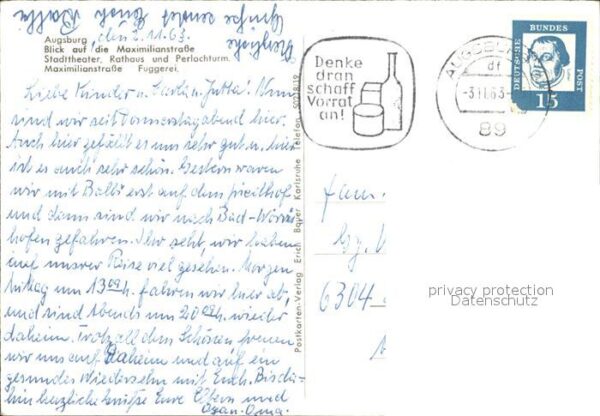 Herzliche Grüße sendet Euch Ralli
Augsburg, den 2.11.63.
Blick auf die Maximilianstraße
Stadttheater, Rathaus und Perlachturm.
Maximilianstraße Fuggerei.
Liebe Kinder u. Jutta! Nun
sind wir seit Donnerstagabend hier.
Auch hier gefällt es uns sehr gut u. hier
ist es auch sehr schön. Gestern waren
wir mit Balbi erst auf dem Friedhof
und dann sind wir nach Bad-Wöris-
hofen gefahren. Ihr seht, wir haben
auf unsrer Reise viel gesehen. Morgen
mittag um 13.09 h. fahren wir hier ab,
und sind Abends um 20.00 h. wieder
daheim. Trotz all dem Schönen freuen
wir uns auf Daheim und auf ein
gesundes Wiedersehn mit Euch. Bis da-
hin herzliche Grüße Eure Eltern und
Opa u. Oma.
Postkarten-Verlag Erich Bauer Karlsruhe Telefon
Denke
dran
schaff
Vorrat
an!
AUGSBURG
-3.11.63-
89
DEUTSCHE
BUNDES
POST
15
Fam.
6304
privacy protection
Datenschutz